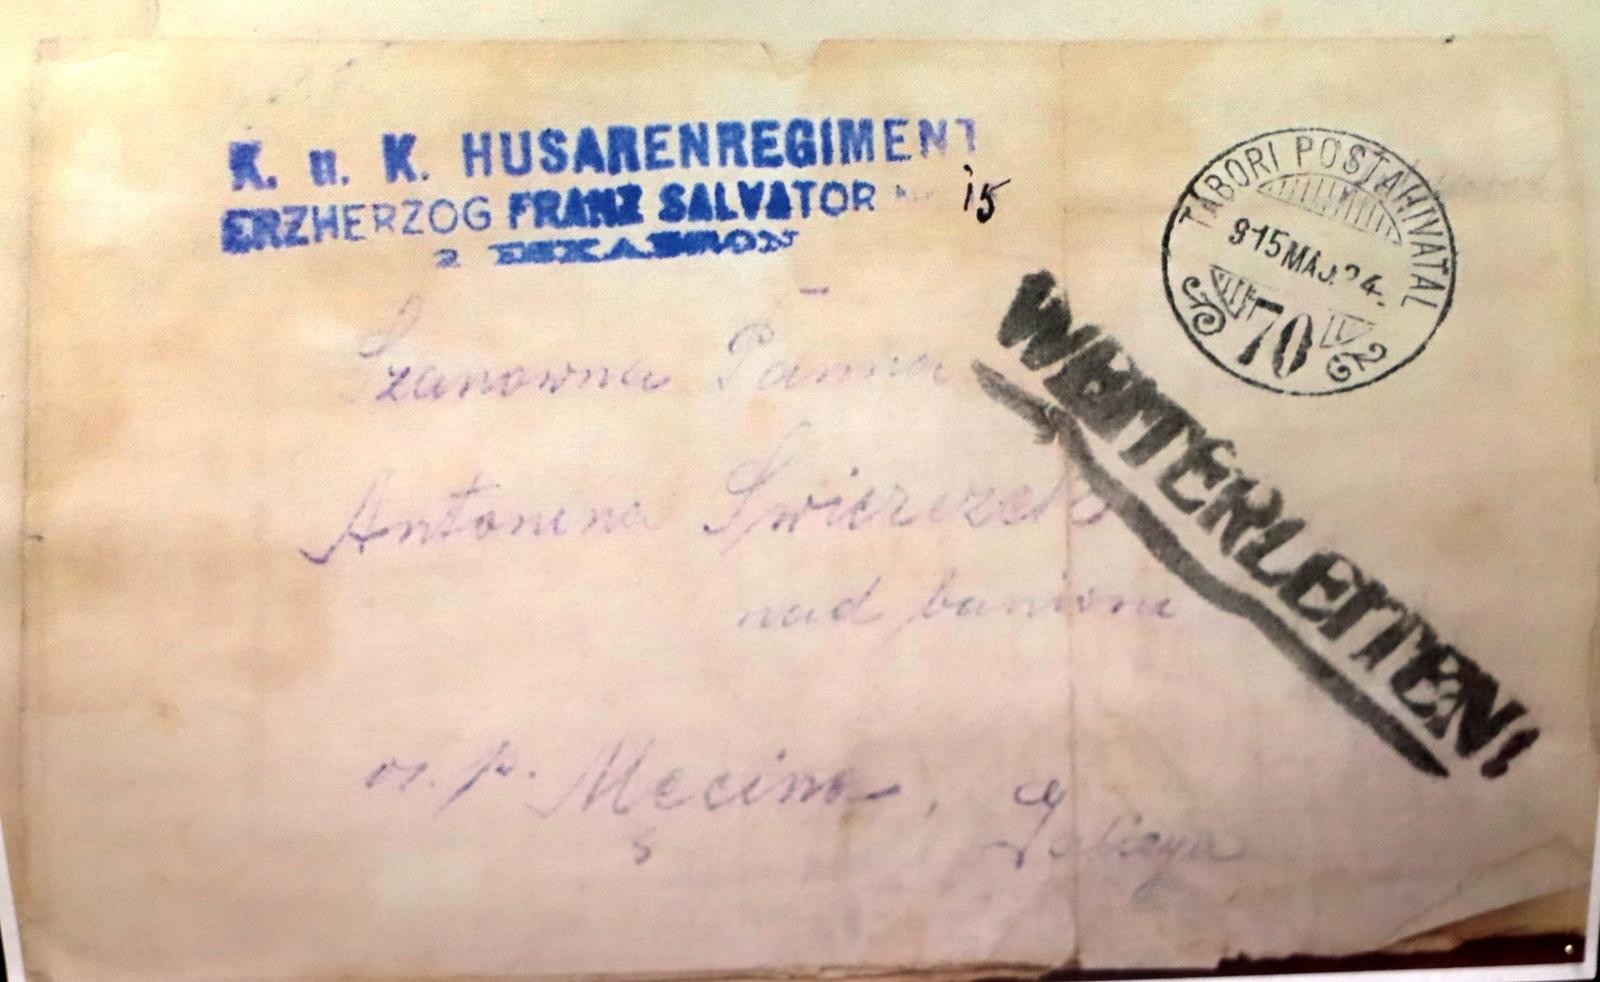 K. u. K. HUSARENREGIMENT
ERZHERZOG FRANZ SALVATOR Nr 15
2 ESKADRON
TÁBORI POSTAHIVATAL
915 MÁJ. 24.
70
WEITERLEITEN!
Szanowna Panna
Antonina Świerczek
nad baniom
os. p. Męcina, Galicya